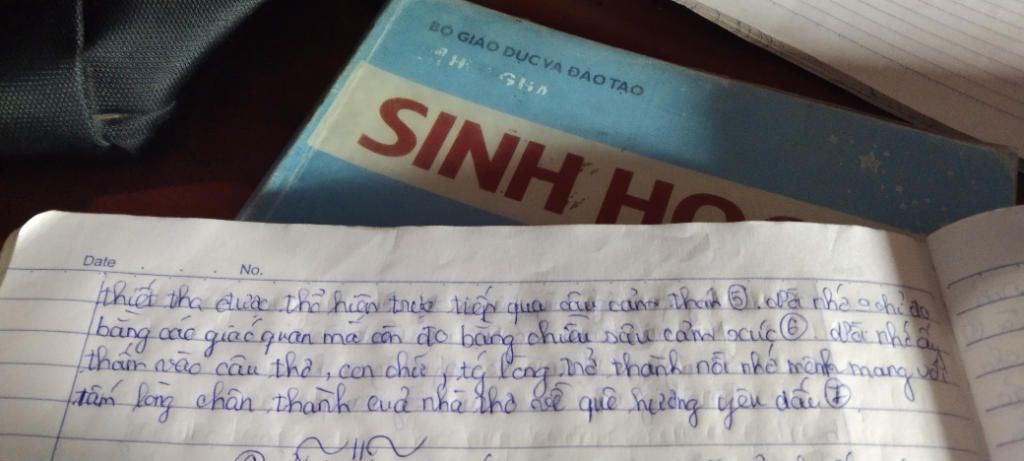 BỘ GIÁO DỤC VÀ ĐÀO TẠO
SINH HỌC
Date No.
thiết tha được thể hiện trực tiếp qua câu cảm thán ⑤. nhớ chỉ đo
bằng các giác quan mà còn đo bằng chiều sâu cảm xúc ⑥ nhớ ấy
thấm vào câu thơ, con chữ, lòng trở thành nỗi nhớ mênh mang với
tấm lòng chân thành của nhà thơ về quê hương yêu dấu ⑦